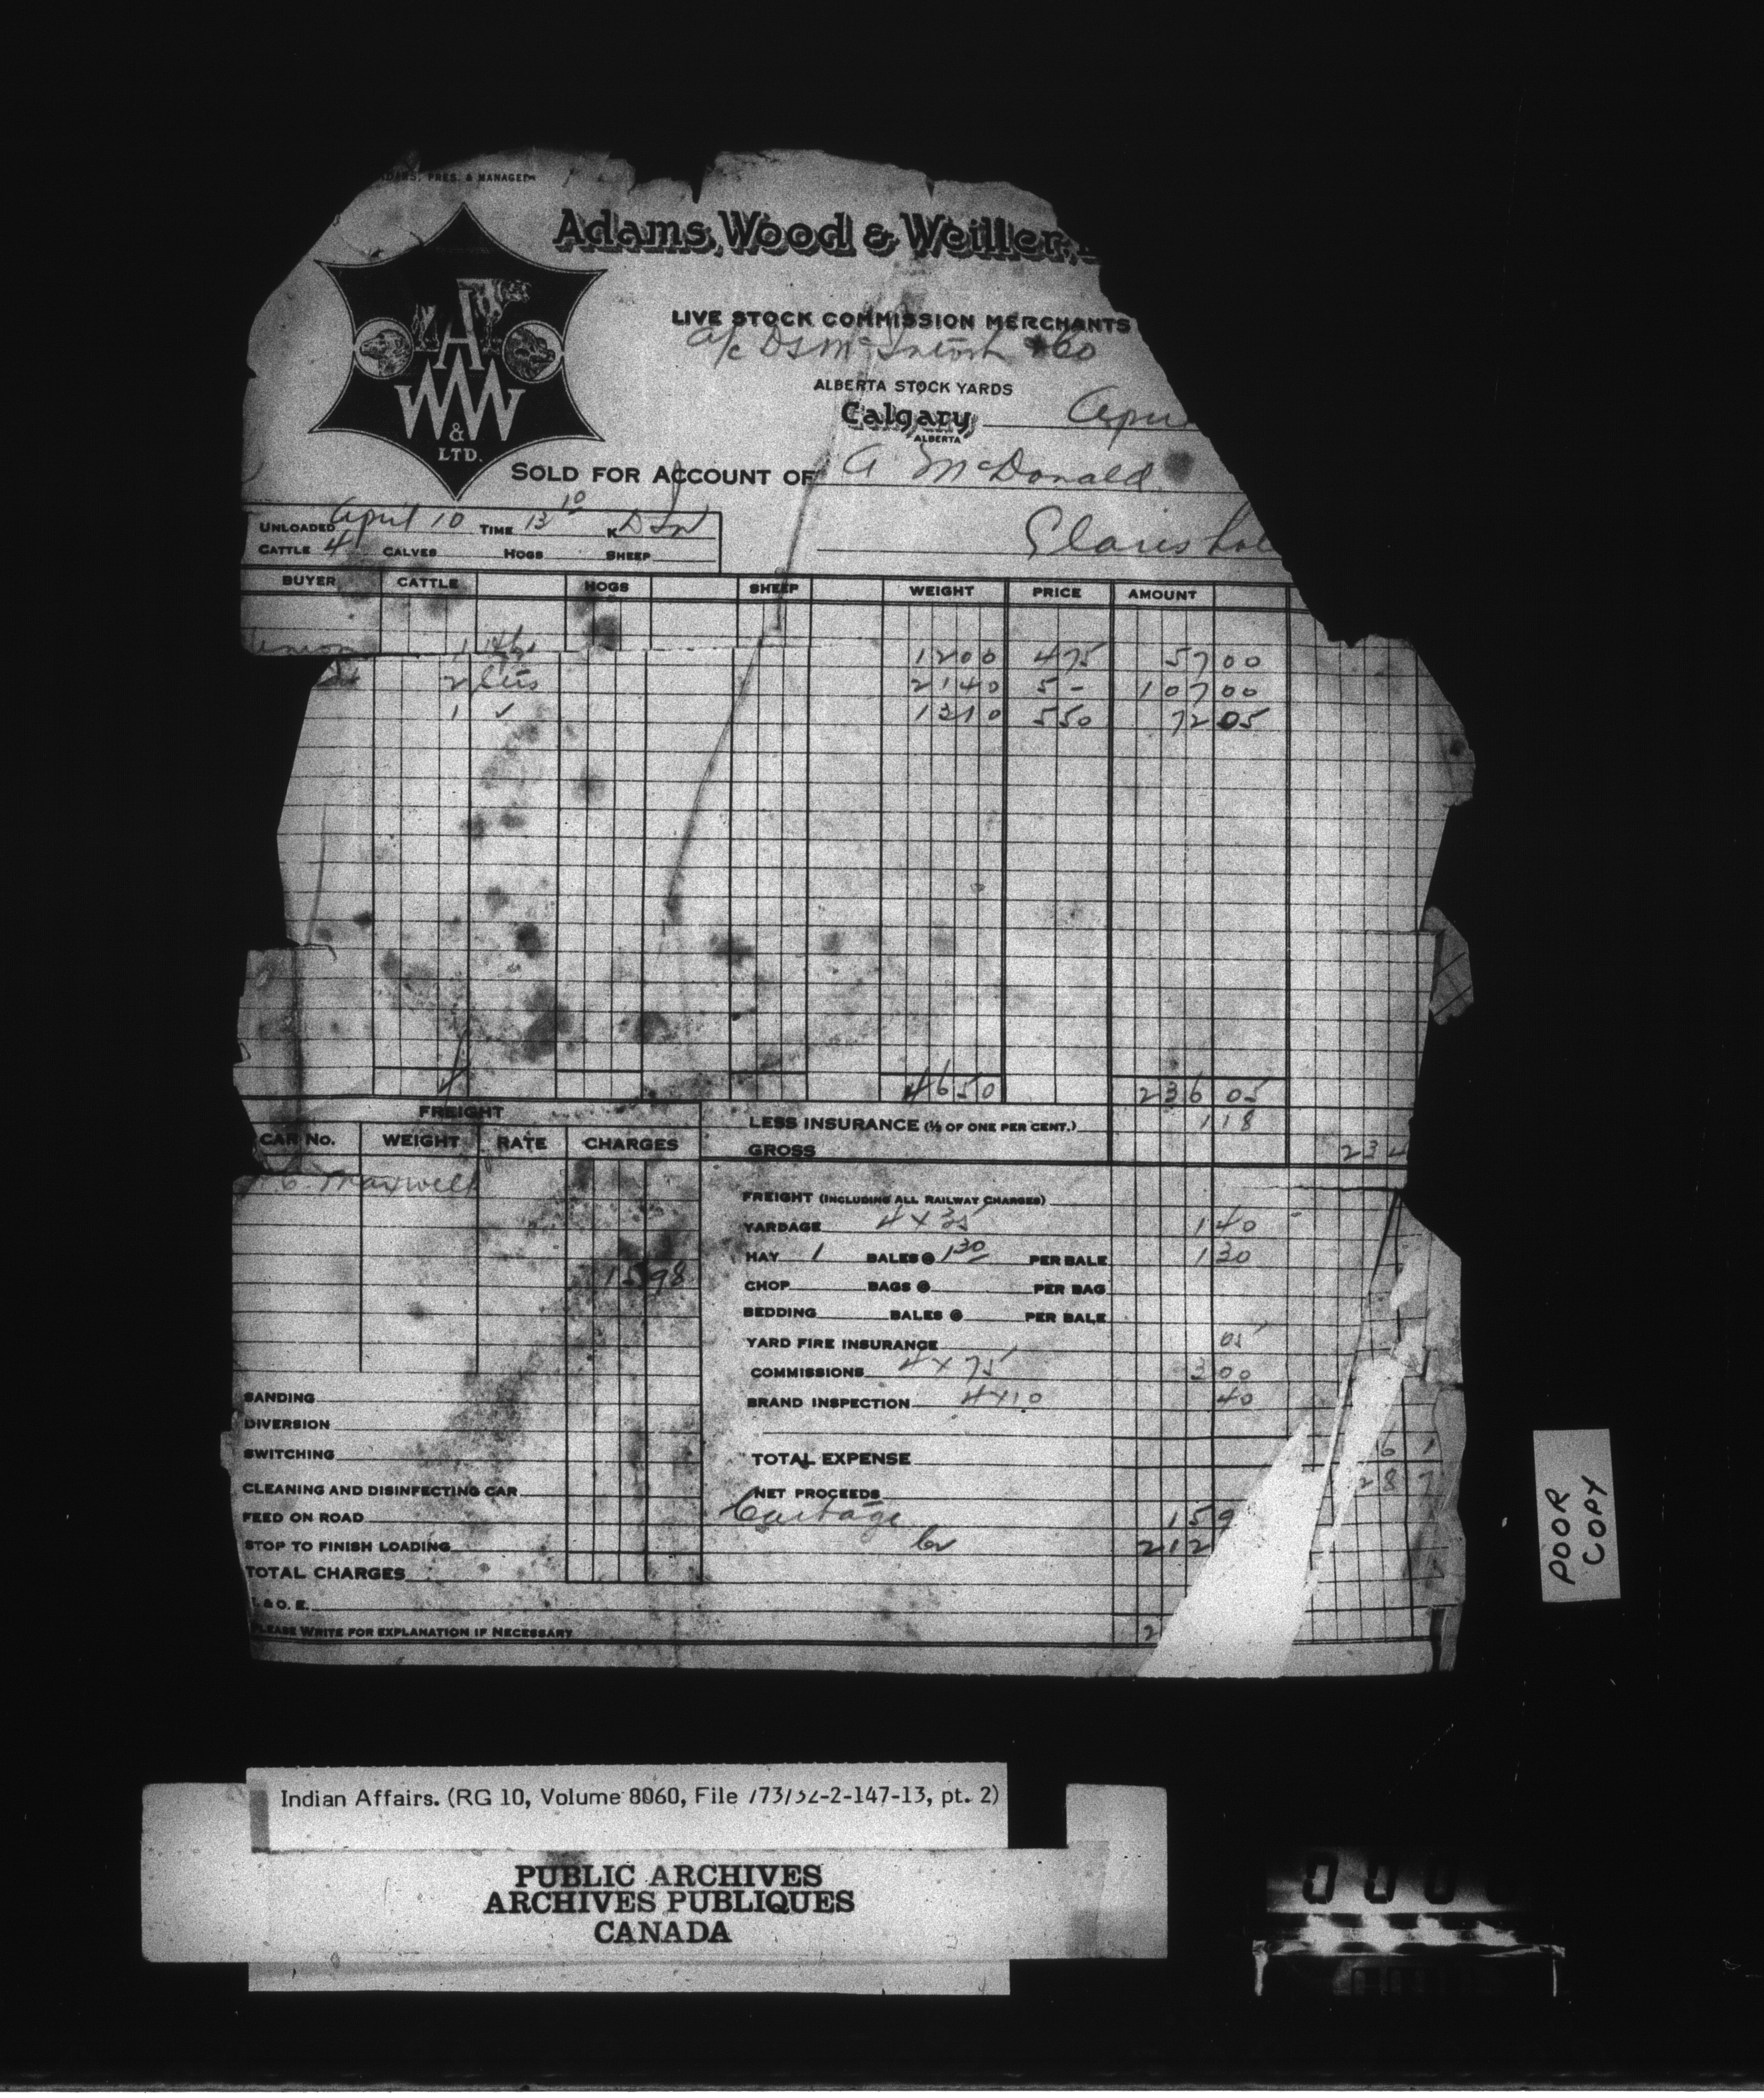 PRES. & MANAGER
Adams, Wood & Weiller,
A
W W
&
LTD.
LIVE STOCK COMMISSION MERCHANTS
a/c D S McIntosh & Co
ALBERTA STOCK YARDS
Calgary,
ALBERTA
SOLD FOR ACCOUNT OF A McDonald
UNLOADED April 10 TIME 13 10 K
CATTLE 4 CALVES HOGS SHEEP
BUYER CATTLE HOGS SHEEP WEIGHT PRICE AMOUNT
Union 1 1200 475 57 00
2 2140 5 - 107 00
1 ✓ 1310 550 72 05
4 4650 236 05
FREIGHT
LESS INSURANCE (½ OF ONE PER CENT.) 1 18
CAR No. WEIGHT RATE CHARGES
GROSS 234
Maxwell
FREIGHT (INCLUDING ALL RAILWAY CHARGES)
YARDAGE 4 x 35 1 40
HAY 1 BALES @ 1 30 PER BALE 1 30
15 98
CHOP BAGS @ PER BAG
BEDDING BALES @ PER BALE
YARD FIRE INSURANCE 05
COMMISSIONS 4 x 75 3 00
SANDING
BRAND INSPECTION 4 x 10 40
DIVERSION
SWITCHING
TOTAL EXPENSE 6 1
CLEANING AND DISINFECTING CAR
NET PROCEEDS 28 7
FEED ON ROAD
Cartage 15 9
STOP TO FINISH LOADING
212
TOTAL CHARGES
& O. E.
PLEASE WRITE FOR EXPLANATION IF NECESSARY
2
POOR
COPY
Indian Affairs. (RG 10, Volume 8060, File 773/32-2-147-13, pt. 2)
PUBLIC ARCHIVES
ARCHIVES PUBLIQUES
CANADA